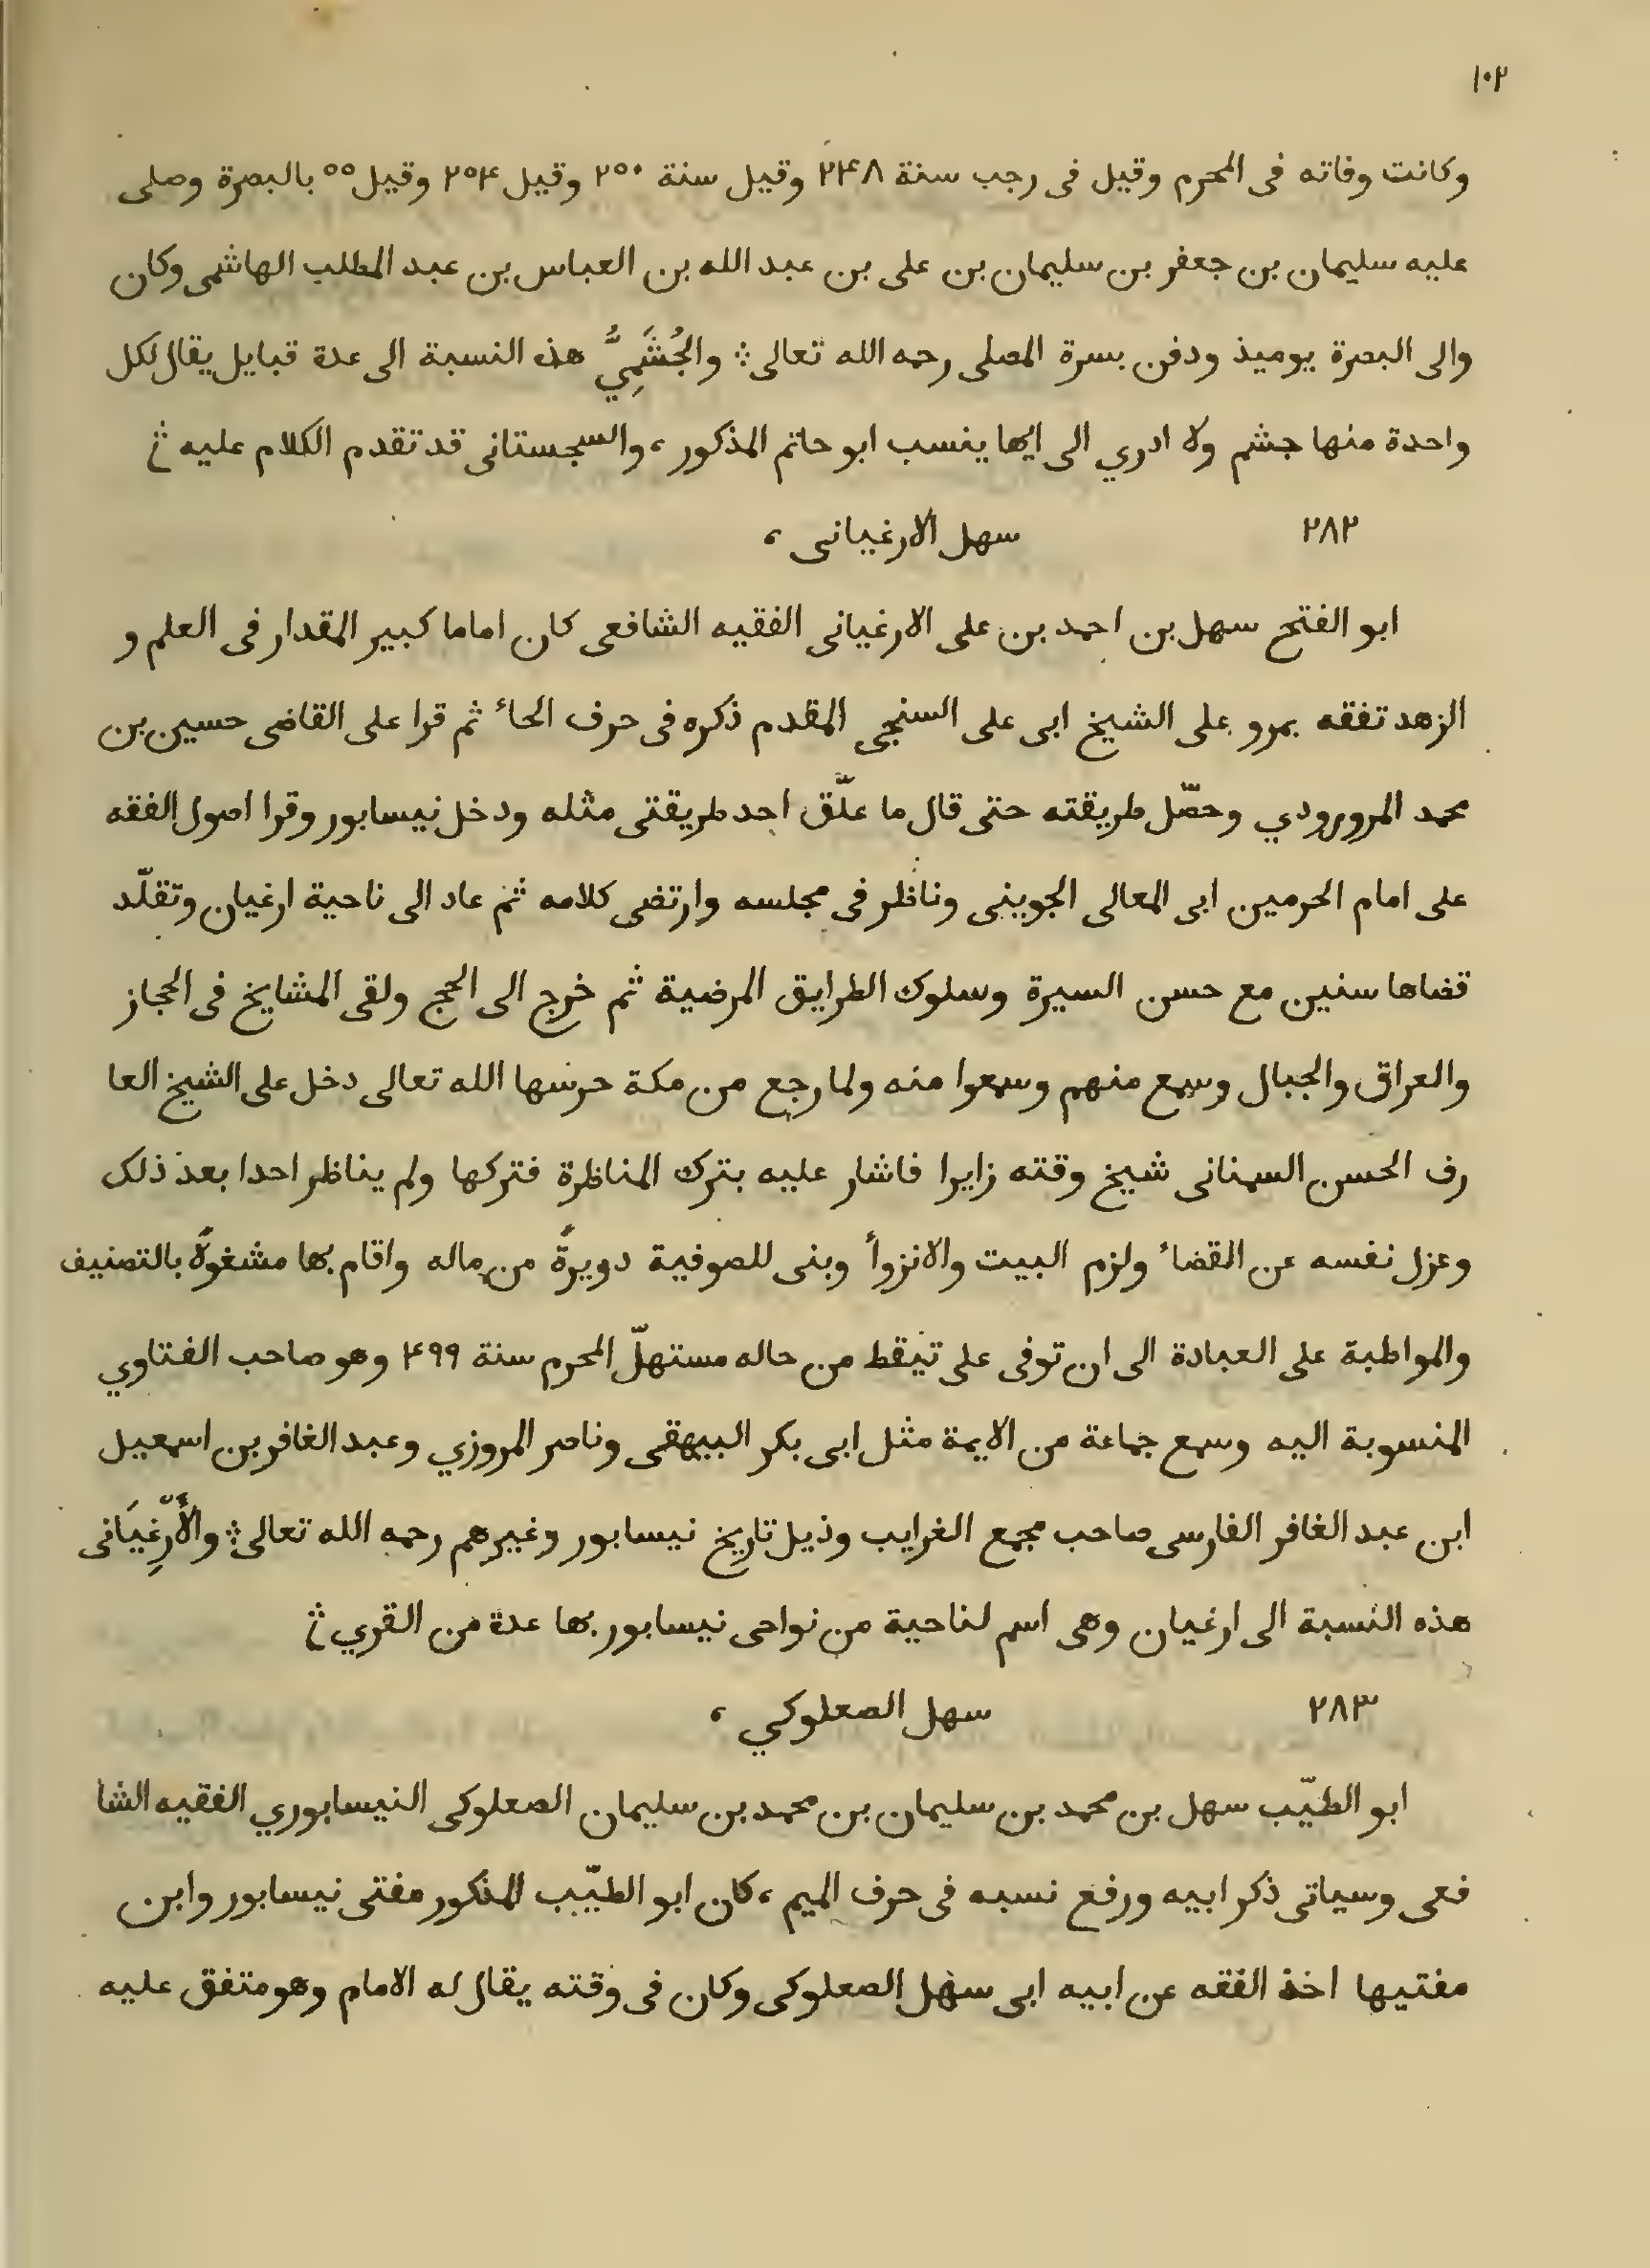 ١٠٢
وكانت وفاته فى المحرم وقيل فى رجب سنة ٢٤٨ وقيل سنة ٢٥٠ وقيل ٢٥٤ وقيل ٥٥ بالبصرة وصلى
عليه سليمان بن جعفر بن سليمان بن على بن عبد الله بن العباس بن عبد المطلب الهاشمى وكان
والى البصرة يوميذ ودفن بسرة المصلى رحمه الله تعالى ؞ والجُشَمِيُّ هذه النسبة الى عدة قبايل يقال لكل
واحدة منها جشم ولا ادري الى ايها ينسب ابو حاتم المذكور، والسجستانى قد تقدم الكلام عليه ؞
٢٨٢ سهل الارغيانى ،
ابو الفتح سهل بن احمد بن على الارغيانى الفقيه الشافعى كان اماما كبير المقدار فى العلم و
الزهد تفقه بمرو على الشيخ ابى على السنجى المقدم ذكره فى حرف الحاء ثم قرا على القاضى حسين بن
محمد المرورودي وحصّل طريقته حتى قال ما علّق احد طريقتى مثله ودخل نيسابور وقرا اصول الفقه
على امام الحرمين ابى المعالى الجوينى وناظر فى مجلسه وارتضى كلامه ثم عاد الى ناحية ارغيان وتقلّد
قضاها سنين مع حسن السيرة وسلوك الطرايق المرضية ثم خرج الى الحج ولقى المشايخ فى الحجاز
والعراق والجبال وسمع منهم وسمعوا منه ولما رجع من مكة حرسها الله تعالى دخل على الشيخ العا
رف الحسن السمنانى شيخ وقته زايرا فاشار عليه بترك المناظرة فتركها ولم يناظر احدا بعد ذلك
وعزل نفسه عن القضاء ولزم البيت والانزوأ وبنى للصوفية دويرةً من ماله واقام بها مشغولًا بالتصنيف
والمواظبة على العبادة الى ان توفى على تيقظ من حاله مستهلّ المحرم سنة ٤٩٩ وهو صاحب الفتاوي
المنسوبة اليه وسمع جماعة من الايمة مثل ابى بكر البيهقى وناصر المروزي وعبد الغافر بن اسمعيل
ابن عبد الغافر الفارسى صاحب مجمع الغرايب وذيل تاريخ نيسابور وغيرهم رحمه الله تعالى ؞ والأَرْغِيَانى
هذه النسبة الى ارغيان وهى اسم لناحية من نواحى نيسابور بها عدة من القري ؞
٢٨٣ سهل الصعلوكي ،
ابو الطيّب سهل بن محمد بن سليمان بن محمد بن سليمان الصعلوكى النيسابوري الفقيه الشا
فعى وسياتى ذكر ابيه ورفع نسبه فى حرف الميم ، كان ابو الطيّب المذكور مفتى نيسابور وابن
مفتيها اخذ الفقه عن ابيه ابى سهل الصعلوكى وكان فى وقته يقال له الامام وهو متفق عليه